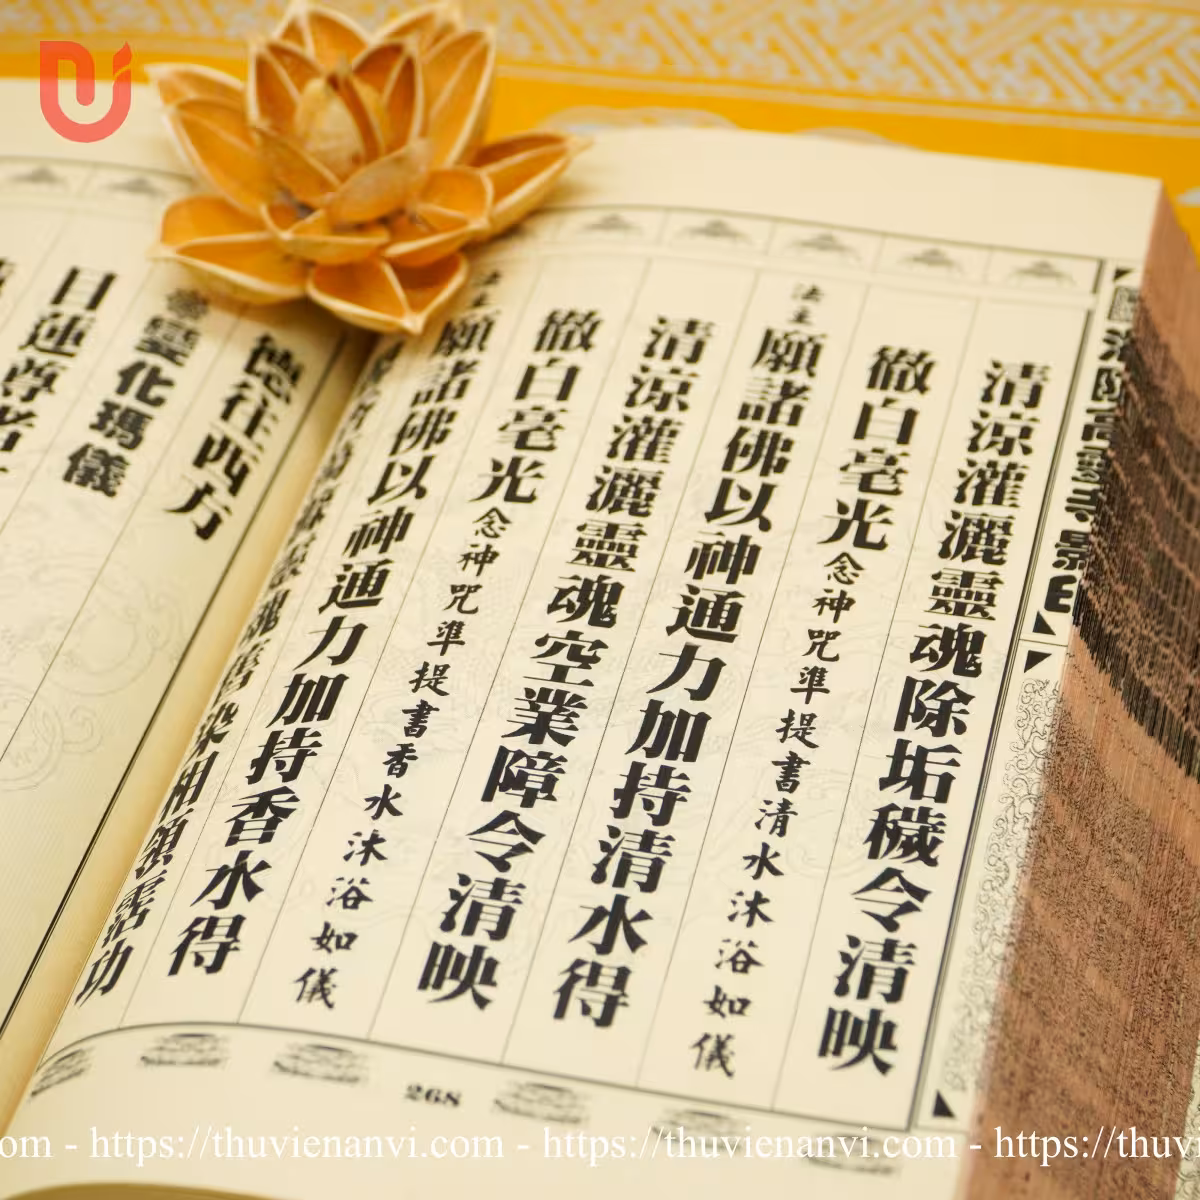 清涼灌灑靈魂除垢穢令清映
徹白毫光念神咒準提書清水沐浴如儀
法主願諸佛以神通力加持清水得
清涼灌灑靈魂空業障令清映
徹白毫光念神咒準提書香水沐浴如儀
法主願諸佛以神通力加持香水得
德往西方
變化瑪儀
目蓮尊者
268
https://thuvienanvi.com - https://thuvienanvi.com - https://thuvi